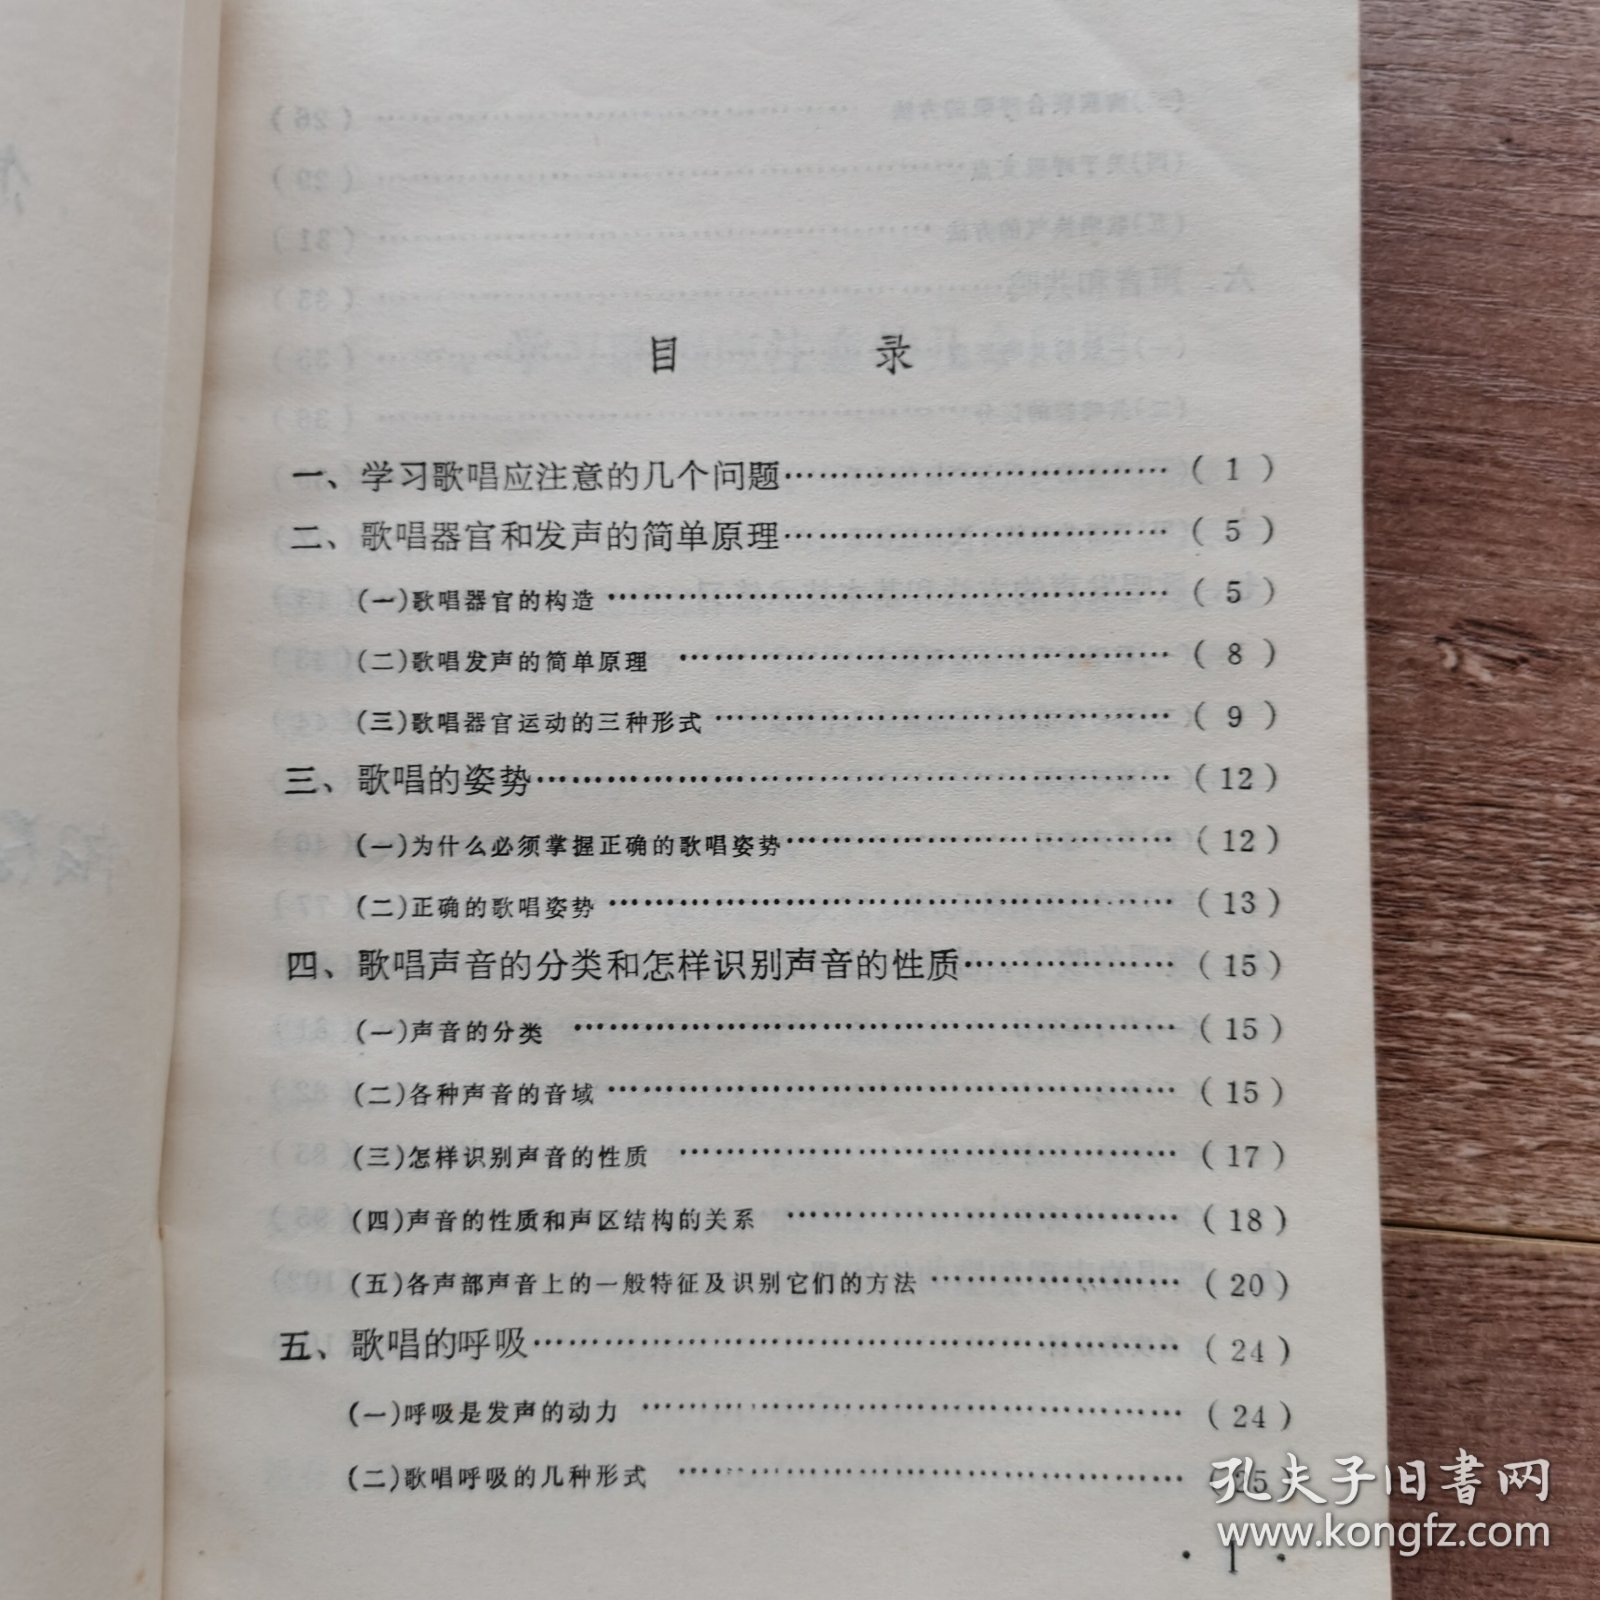 目 录
一、学习歌唱应注意的几个问题……………………………（1）
二、歌唱器官和发声的简单原理……………………………（5）
（一）歌唱器官的构造……………………………………（5）
（二）歌唱发声的简单原理……………………………………（8）
（三）歌唱器官运动的三种形式………………………………（9）
三、歌唱的姿势………………………………………………（12）
（一）为什么必须掌握正确的歌唱姿势…………………………（12）
（二）正确的歌唱姿势…………………………………………（13）
四、歌唱声音的分类和怎样识别声音的性质………………（15）
（一）声音的分类………………………………………………（15）
（二）各种声音的音域…………………………………………（15）
（三）怎样识别声音的性质……………………………………（17）
（四）声音的性质和声区结构的关系…………………………（18）
（五）各声部声音上的一般特征及识别它们的方法…………………（20）
五、歌唱的呼吸………………………………………………（24）
（一）呼吸是发声的动力………………………………………（24）
（二）歌唱呼吸的几种形式……………………………………（25
孔夫子旧书网
www.kongfz.com
·1·